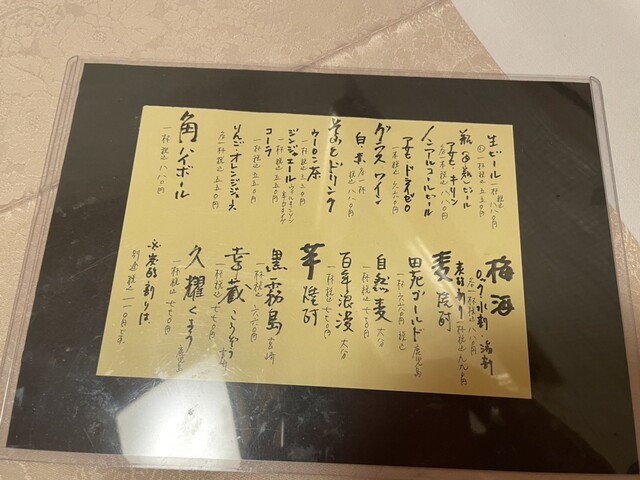 生ビール
一杯税込八八〇円
一杯税込五五〇円
瓶
アサヒ キリン
一本税込八八〇円
ノンアルコールビール
アサヒ ドライゼロ
一本税込六六〇円
グラスワイン
白・赤
一杯税込八八〇円
ドリンク
ウーロン茶
ジンジャエール
コーラ
一杯税込五五〇円
りんご・オレンジジュース
一杯税込五五〇円
角ハイボール
一杯税込八八〇円
梅酒
ロック 水割 湯割
一杯税込八八〇円
麦焼酎
田苑ゴールド 鹿児島
一杯六六〇円税込
自然麦 大分
一杯税込七七〇円
百年浪漫 大分
一杯税込七七〇円
芋焼酎
黒霧島 宮崎
一杯税込六六〇円
幸蔵 こうぞう 宮崎
一杯税込七七〇円
久耀 くよう
一杯税込七七〇円
※炭酸割りは、
別途税込一一〇円です。